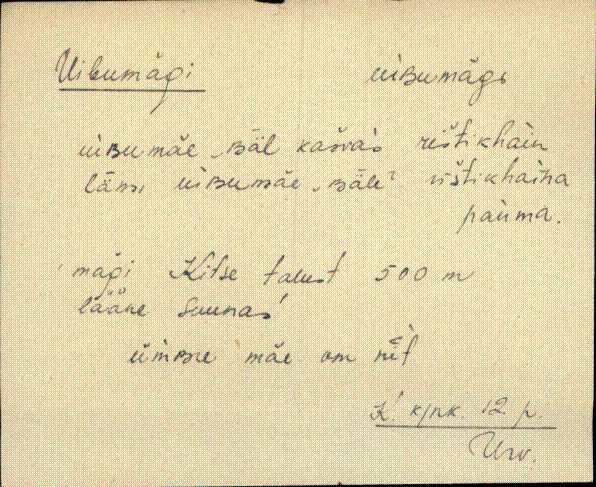 Uibumägi uiʙumäǵi
uiʙumäe ˬʙäl kašvaˋs rištikhäin
länɪ uiʙumäe ˬʙäleˀ rištikhäina
paiɪma.
mägi Kitse talust 500 m
lääne suunas
üm̀ʙre mäe om nìt
K. kjnk. 12 p.
Urv.